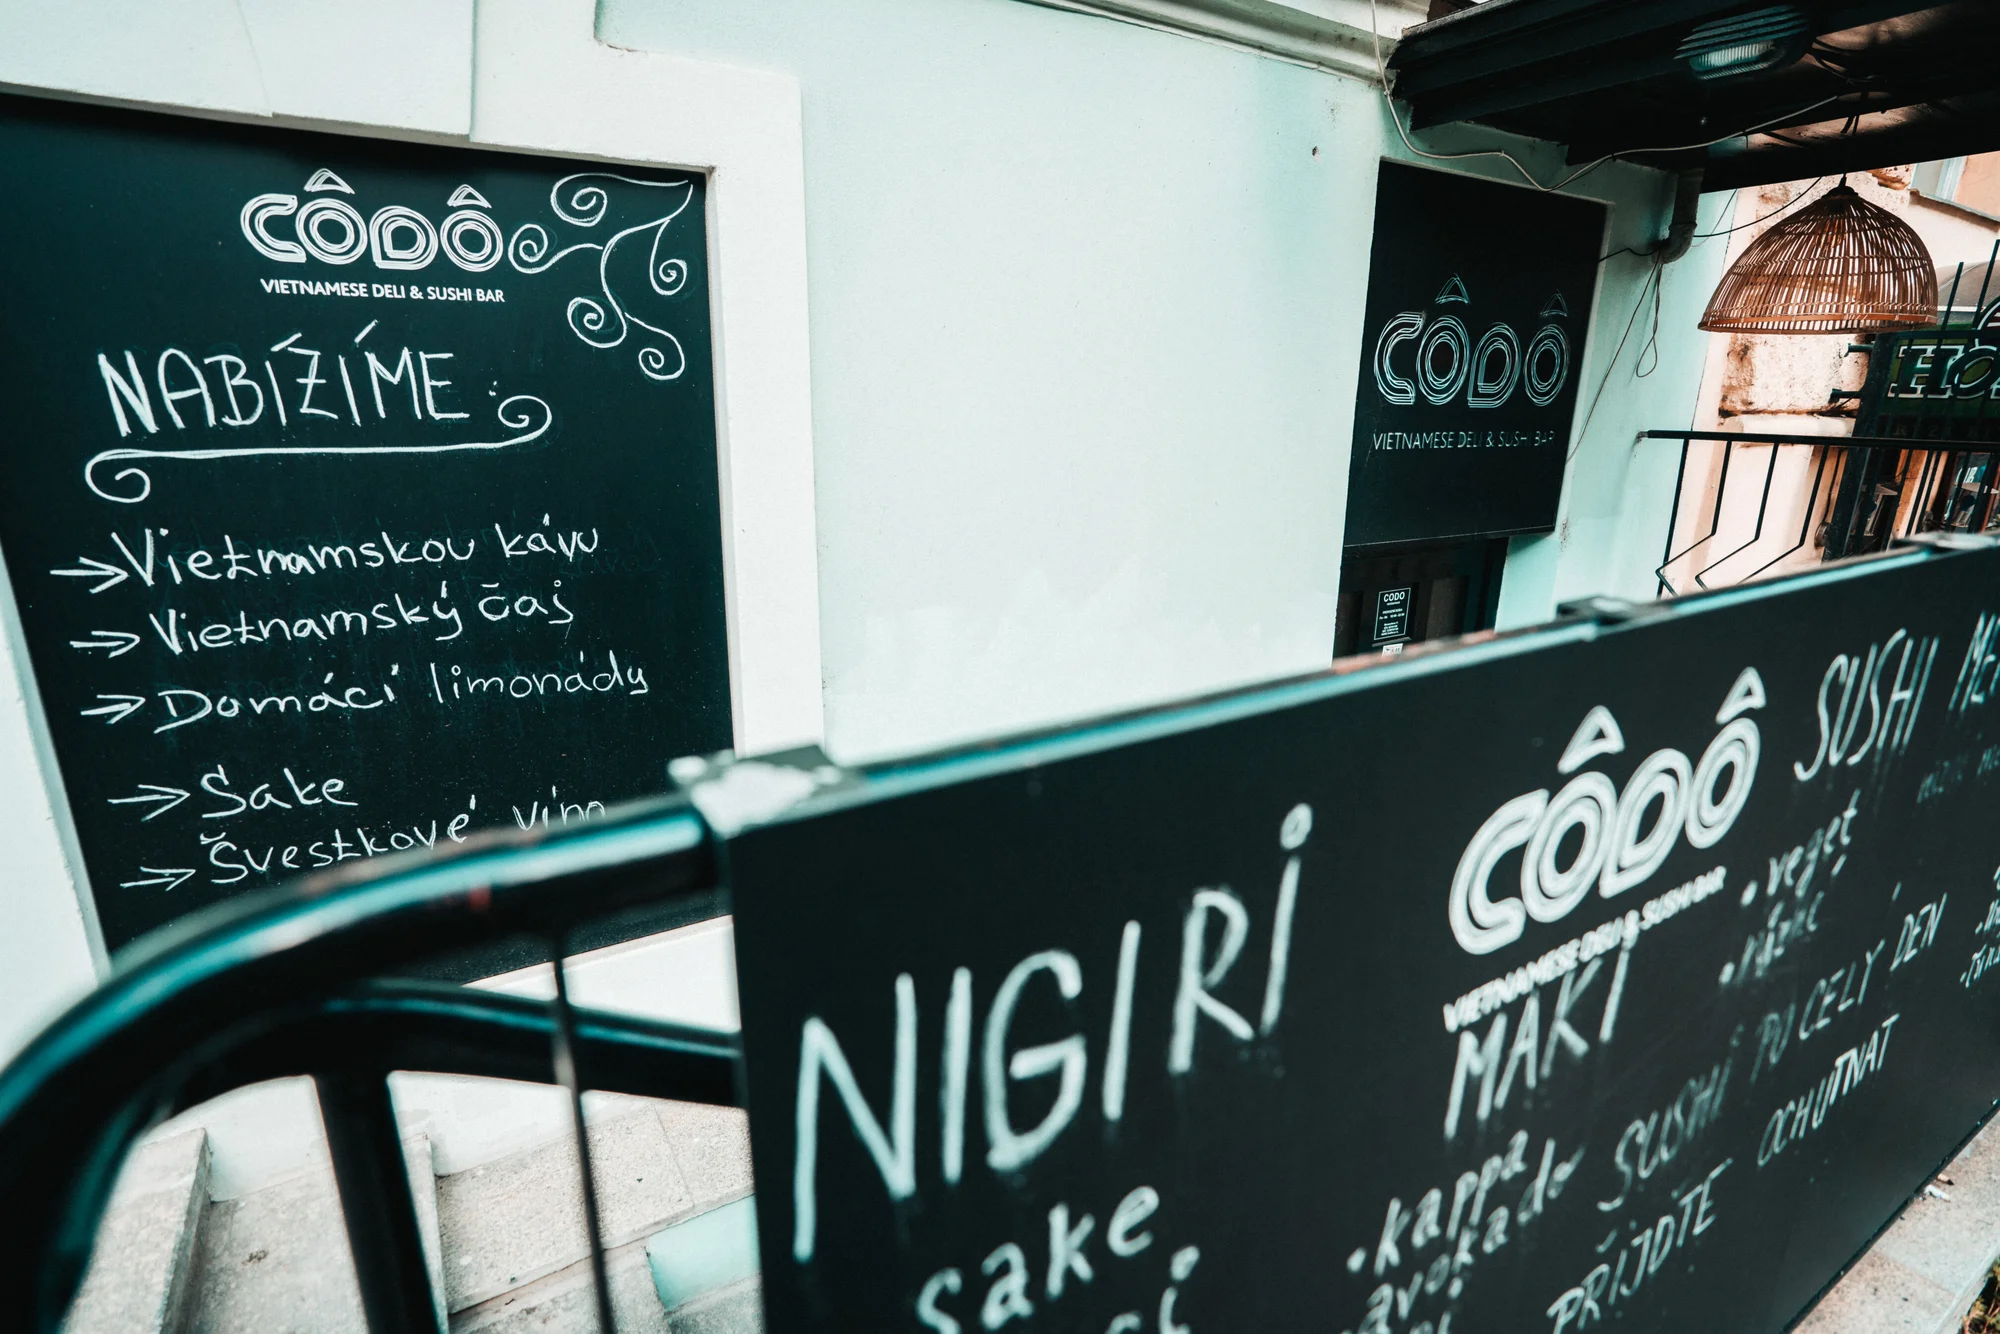 CÔDÔ
VIETNAMESE DELI & SUSHI BAR
NABÍZÍME:
→ Vietnamskou kávu
→ Vietnamský čaj
→ Domácí limonády
→ Sake
→ Švestkové víno
CÔDÔ
VIETNAMESE DELI & SUSHI BAR
CODO
NIGIRI
sake
CÔDÔ
VIETNAMESE DELI & SUSHI BAR
MAKI
• kappa
avokado
SUSHI
• veget
SUSHI PO CELÝ DEN
PŘIJĎTE OCHUTNAT